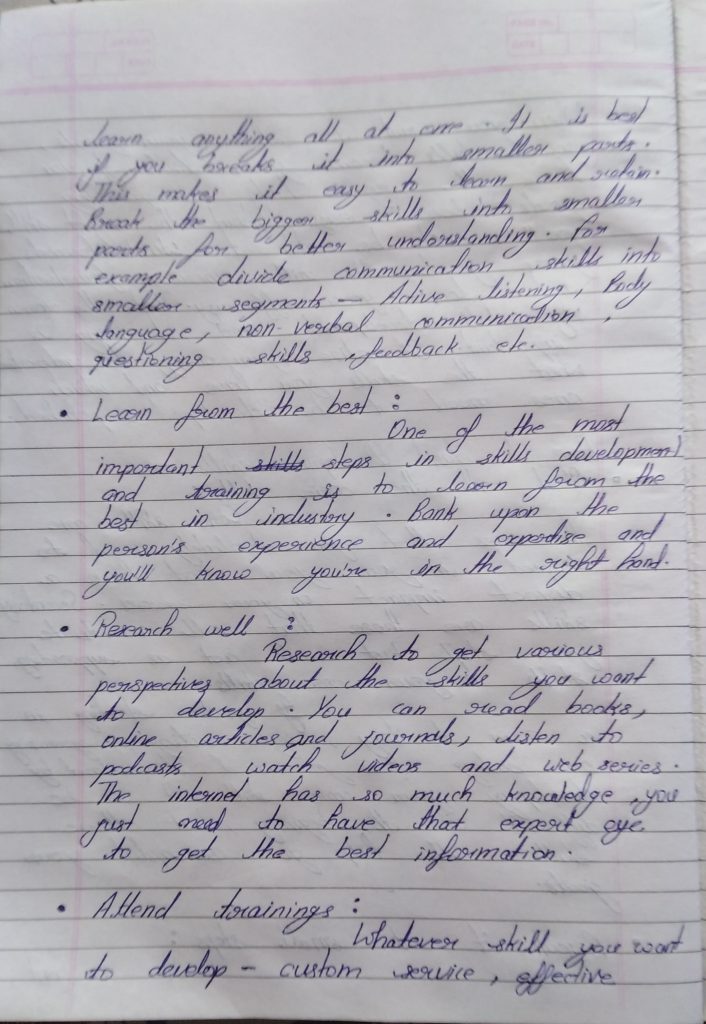 learn anything all at one. It is best
if you breaks it into smaller parts.
This makes it easy to learn and retain.
Break the bigger skills into smaller
parts for better understanding. For
example divide communication skills into
smaller segments - Active listening, Body
language, non-verbal communication,
questioning skills, feedback etc.
• Learn from the best :
One of the most
important skills steps in skills development
and training is to learn from the
best in industry. Bank upon the
person's experience and expertise and
you'll know you're in the right hand.
• Research well :
Research to get various
perspectives about the skills you want
to develop. You can read books,
online articles and journals, listen to
podcasts watch videos and web series.
The internet has so much knowledge, you
just need to have that expert eye
to get the best information.
• Attend trainings :
Whatever skill you want
to develop - custom service, effective